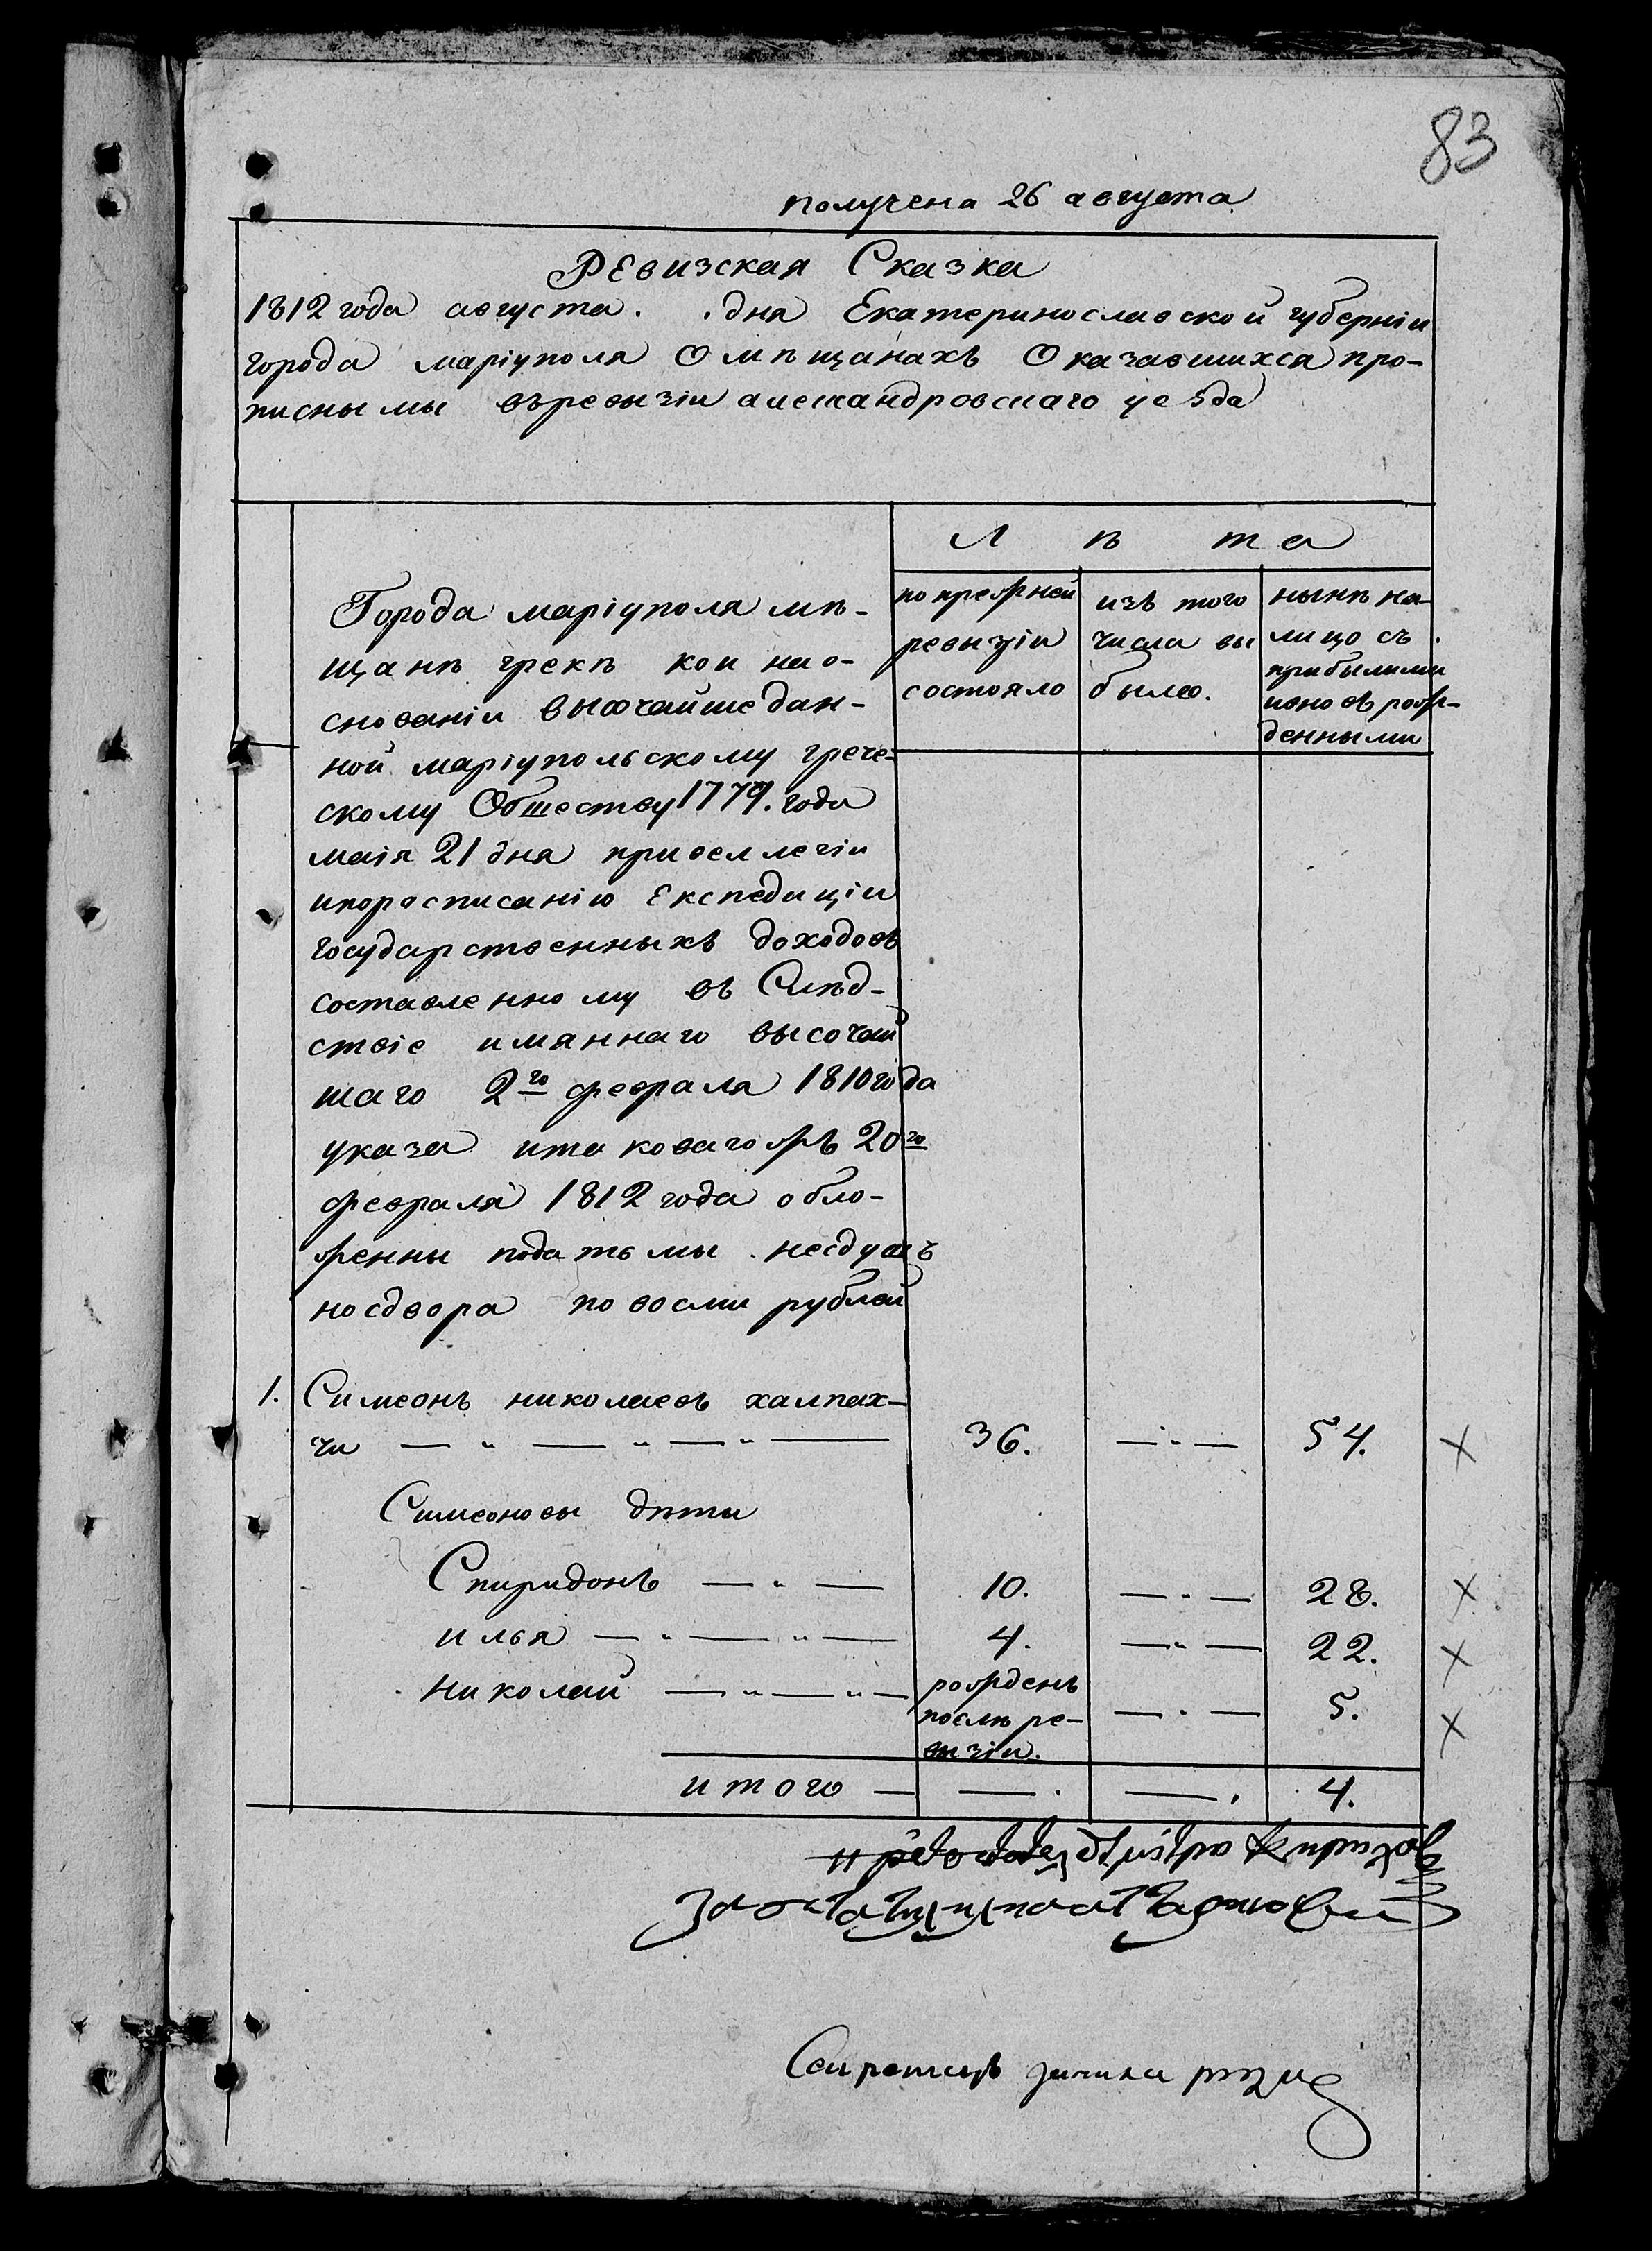 83
получена 26 августа
Ревизская Сказка
1812 года августа . . дня Екатеринославской губерніи
города маріуполя О мѣщанахъ Оказавшихся про-
писными въревызіи александровскаго уезда
Л ѣ та
Города маріуполя мѣ-
щанѣ грекѣ кои нао-
снованіи высочайше дан-
ной маріупольскому грече-
скому Обществу 1779. года
маія 21 дня привеллегіи
ипорасписанію Експедиціи
государственныхъ доходовъ
составленному въ Слѣд-
ствіе имяннаго высочай
шаго 2го февраля 1810 года
указа итаковагожъ 20го
февраля 1812 года обло-
женны податьмы несдушъ
носдвора по восми рублей
попрежней
ревызіи
состояло
изъ того
числа вы
было.
нынѣ на-
лицо съ
прибылими
ивновь рож-
денными
1. Симеонъ николаевъ халпах-
чи — " — " — " — 36. — " — 54. ×
Симеоновы дѣти
Спиридонъ — " — 10. — " — 28. ×
илья — " — " — 4. — " — 22. ×
николай — " — " — рожденъ
послѣ ре-
визіи. — " — 5. ×
итого — — . — . 4.